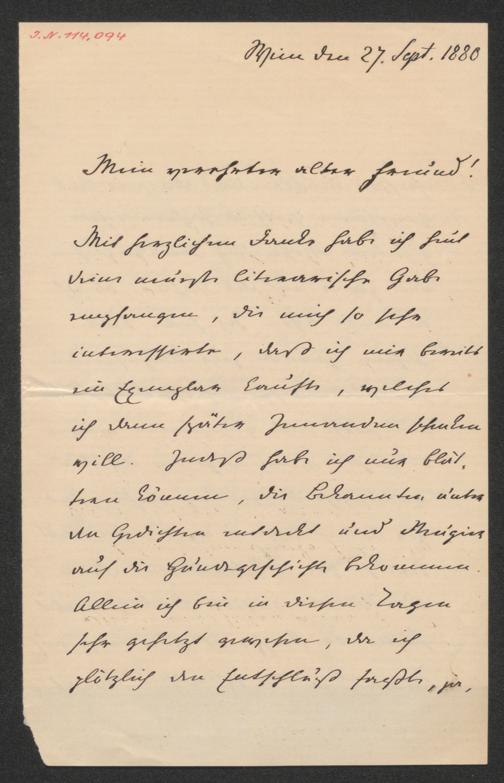 I.N. 114,094
Wien den 27. Sept. 1880
Mein verehrter alter Freund!
Mit herzlichem Danke habe ich heut
deine neueste literarische Gabe
empfangen, die mich so sehr
interessirte, daß ich mir bereits
ein Exemplar kaufte, welches
ich dann später Jemandem schenken
will. Indeß habe ich nur blät-
tern können, die Bekannten unter
den Gedichten entdeckt und Neugier
auf die Hundegeschichte bekommen.
Allein ich bin in diesen Tagen
sehr gehetzt gewesen, da ich
plötzlich den Entschluß faßte,